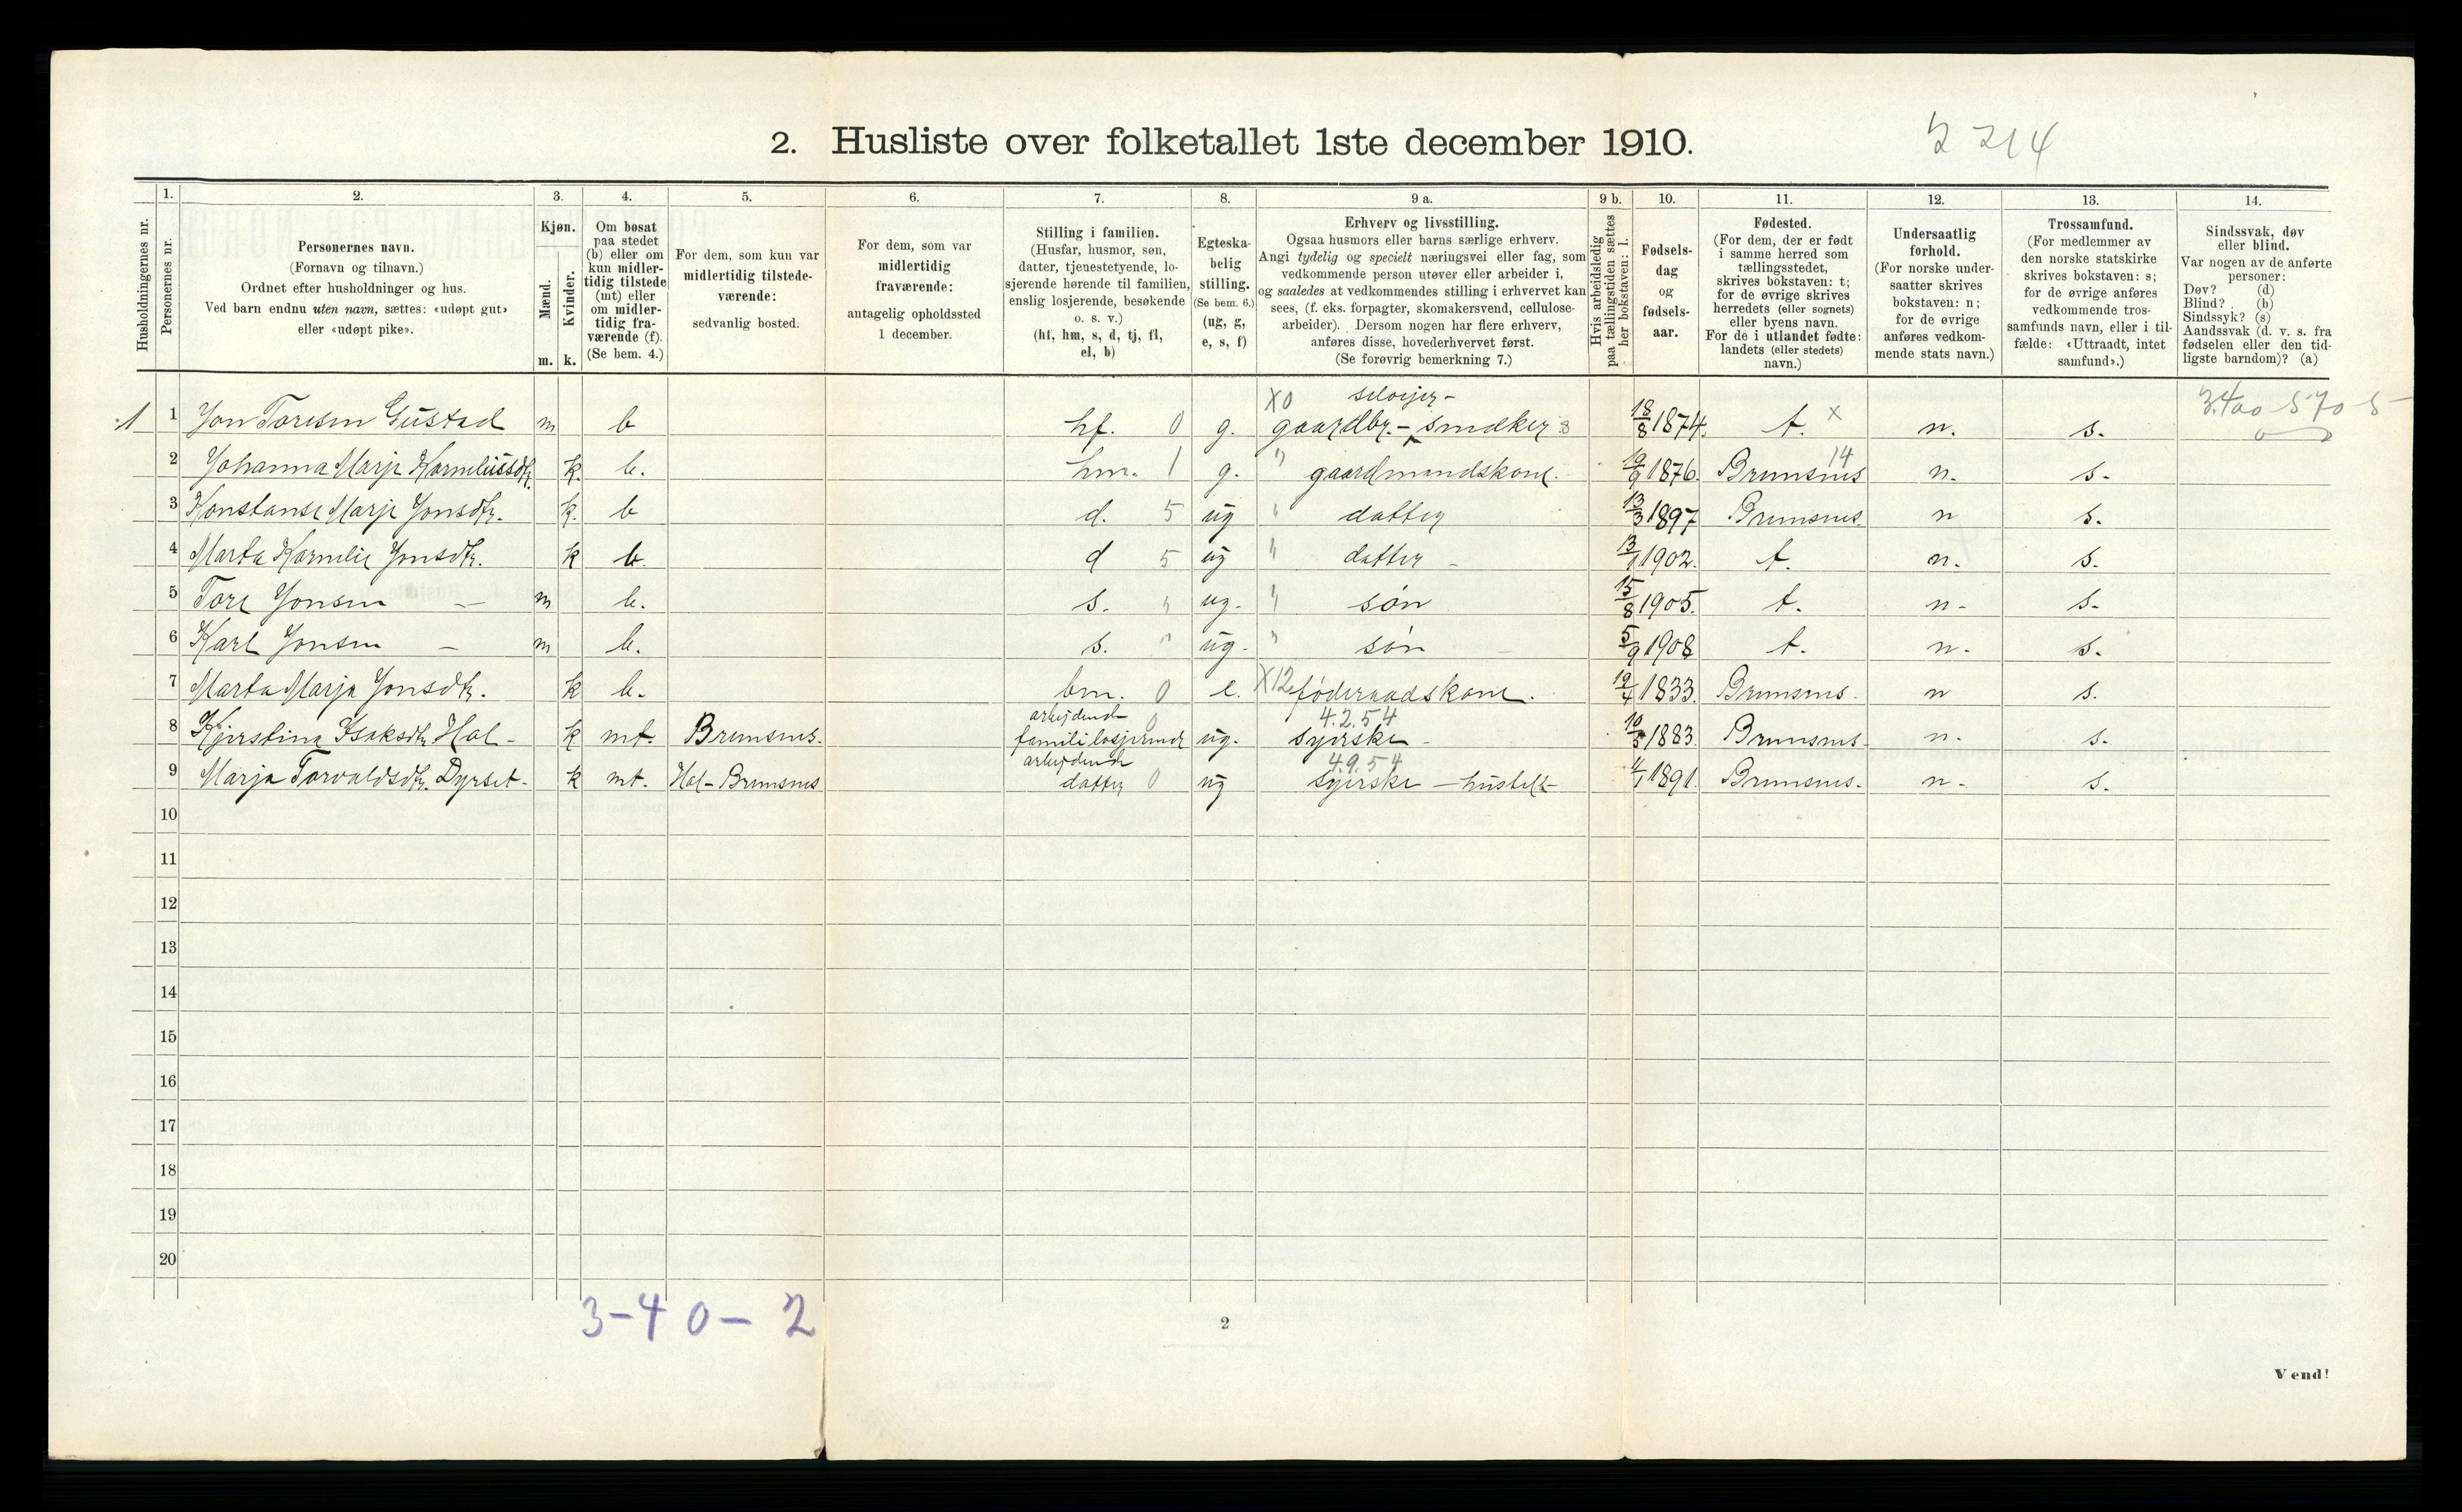 2. Husliste over folketallet 1ste december 1910.
2214
Husholdningernes nr.
1. Personernes nr.
2. Personernes navn.
(Fornavn og tilnavn.)
Ordnet efter husholdninger og hus.
Ved barn endnu uten navn, sættes: «udøpt gut»
eller «udøpt pike».
3. Kjøn.
Mænd. m.
Kvinder. k.
4. Om bosat
paa stedet
(b) eller om
kun midler-
tidig tilstede
(mt) eller
om midler-
tidig fra-
værende (f).
(Se bem. 4.)
5. For dem, som kun var
midlertidig tilstede-
værende:
sedvanlig bosted.
6. For dem, som var
midlertidig
fraværende:
antagelig opholdssted
1 december.
7. Stilling i familien.
(Husfar, husmor, søn,
datter, tjenestetyende, lo-
sjerende hørende til familien,
enslig losjerende, besøkende
o. s. v.)
(hf, hm, s, d, tj, fl,
el, b)
8. Egteska-
belig
stilling.
(Se bem. 6.)
(ug, g,
e, s, f)
9 a. Erhverv og livsstilling.
Ogsaa husmors eller barns særlige erhverv.
Angi tydelig og specielt næringsvei eller fag, som
vedkommende person utøver eller arbeider i,
og saaledes at vedkommendes stilling i erhvervet kan
sees, (f. eks. forpagter, skomakersvend, cellulose-
arbeider). Dersom nogen har flere erhverv,
anføres disse, hovederhvervet først.
(Se forøvrig bemerkning 7.)
9 b. Hvis arbeidsledig
paa tællingstiden sættes
her bokstaven: l.
10. Fødsels-
dag
og
fødsels-
aar.
11. Fødested.
(For dem, der er født
i samme herred som
tællingsstedet,
skrives bokstaven: t;
for de øvrige skrives
herredets (eller sognets)
eller byens navn.
For de i utlandet fødte:
landets (eller stedets)
navn.)
12. Undersaatlig
forhold.
(For norske under-
saatter skrives
bokstaven: n;
for de øvrige
anføres vedkom-
mende stats navn.)
13. Trossamfund.
(For medlemmer av
den norske statskirke
skrives bokstaven: s;
for de øvrige anføres
vedkommende tros-
samfunds navn, eller i til-
fælde: «Uttraadt, intet
samfund».)
14. Sindssvak, døv
eller blind.
Var nogen av de anførte
personer:
Døv? (d)
Blind? (b)
Sindssyk? (s)
Aandssvak (d. v. s. fra
fødselen eller den tid-
ligste barndom)? (a)
1 1 Jon Toresen Gustad m b hf. 0 g. X0 gaardbr. - smaker 18/8 1874. t. x n. s.
2 Johanna Marje Karneliussdtr. k. b. hm. 1 g. " gaardmandskone. 19/9 1876. Bremsnes 14 n. s.
3 Konstanse Marje Jonsdtr. k. b d. 5 ug " datter 13/3 1897 Bremsnes n s.
4 Marta Karnelie Jonsdtr. k b. d 5 ug " datter - 13/1 1902. t. n. s.
5 Tore Jonsen — m b. s. " ug. " søn 15/8 1905. t. n- s.
6 Karl Jonsen — m b. s. " ug. " søn 5/9 1908 t. n. s.
7 Marta Marja Jonsdtr. k b. bm. 0 e. X12 føderaadskone. 19/4 1833. Bremsnes. n s.
arbejdende 4.2.54
8 Kjerstina Isaksdtr Hal - k mt. Bremsnes. famililosjerende 0 ug. syerske - 10/5 1883. Bremsnes. n. s.
arbejdende 4.9.54
9 Marja Torvaldsdtr. Dyrset- k mt. Hal-Bremsnes datter 0 ug syerske - 4/1 1891. Bremsnes. n- s.
10
11
12
13
14
15
16
17
18
19
20
3-4 0- 2
2
Vend!